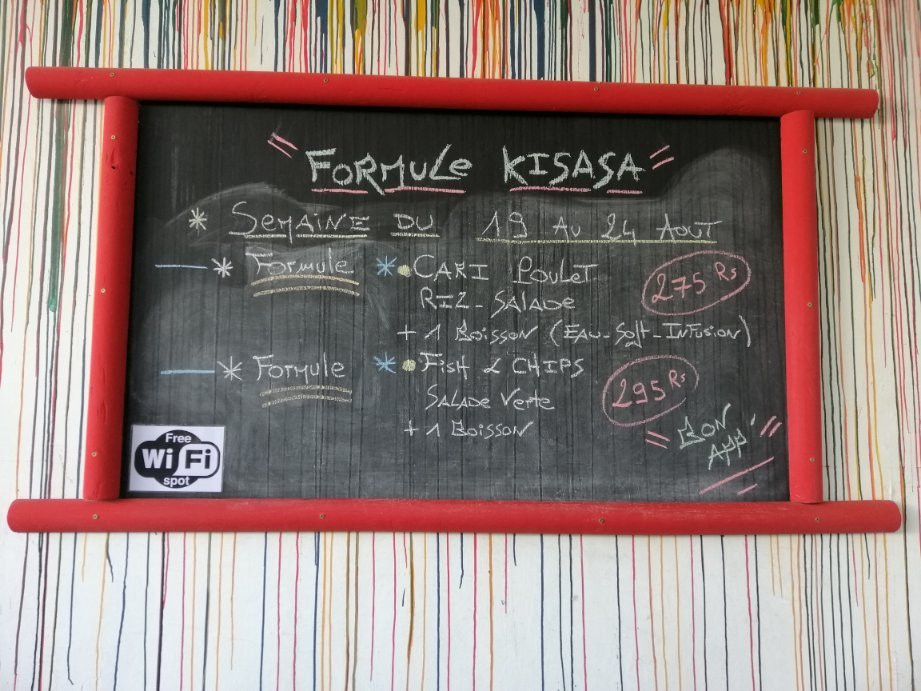 FORMULE KISASA
* SEMAINE DU 19 AU 24 AOUT
* Formule * CARI POULET 275 Rs
RIZ-SALADE
+ 1 BOISSON (EAU-SOFT-INFUSION)
* FORMULE * FISH & CHIPS 295 Rs
SALADE VERTE
+ 1 BOISSON
BON APP'
Free
Wi Fi
spot